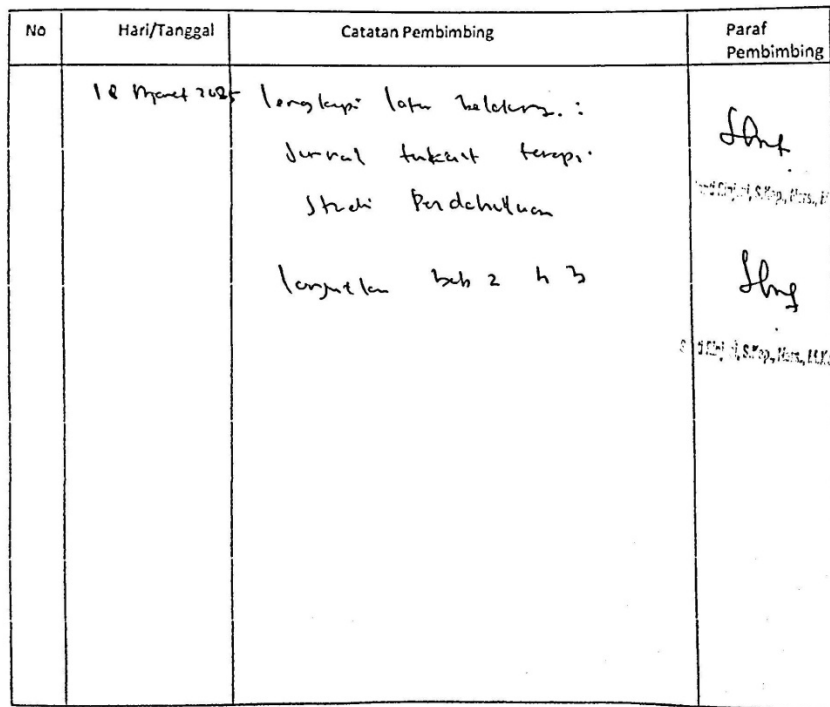 No Hari/Tanggal Catatan Pembimbing Paraf Pembimbing
18 Maret 2025 lengkapi latar belakang :
Jurnal terkait terapi
Studi Pendahuluan
lanjutkan bab 2 & 3
S.Kep., Ners.,
S.Kep., Ners., M.K